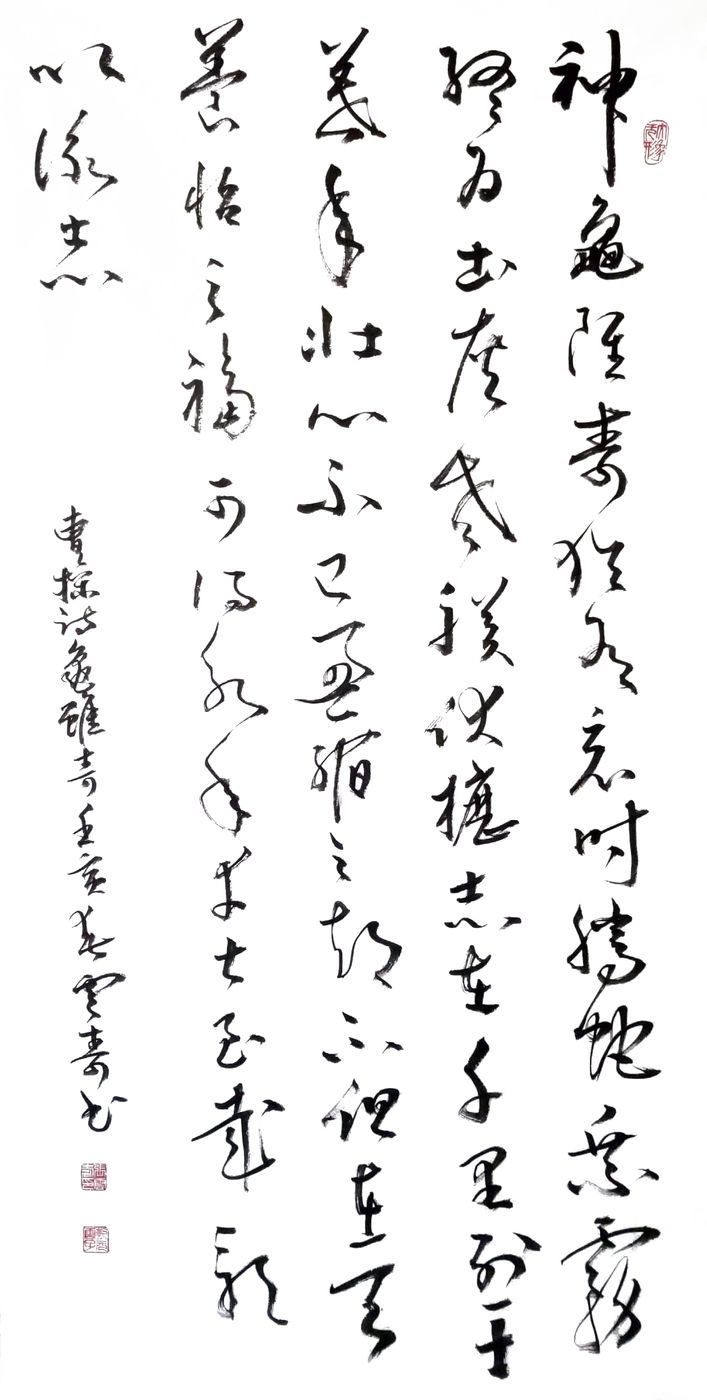 神龜雖壽猶有竟時騰蛇乘霧
終為土灰老驥伏櫪志在千里烈士
暮年壯心不已盈縮之期不但在天
養怡之福可得永年幸甚至哉歌
以詠志
曹操詩龜雖壽壬寅春雲壽書